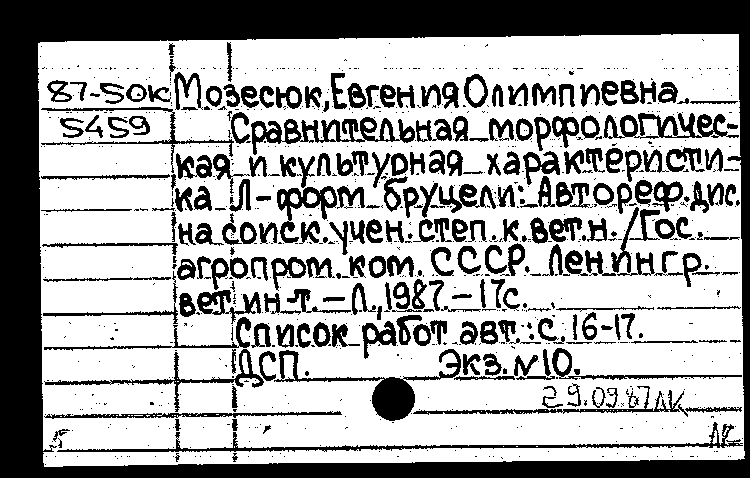 87-50к Мозесюк, Евгения Олимпиевна.
5459 Сравнительная морфологичес-
кая и культурная характеристи-
ка Л-форм бруцели: Автореф. дис.
на соиск. учен. степ. к. вет. н. / Гос.
агропром. ком. СССР. Ленингр.
вет. ин-т. — Л., 1987. — 17с.
Список работ авт.: с. 16-17.
ДСП. Экз. № 10.
29.09.87 ЛК
Б ЛК